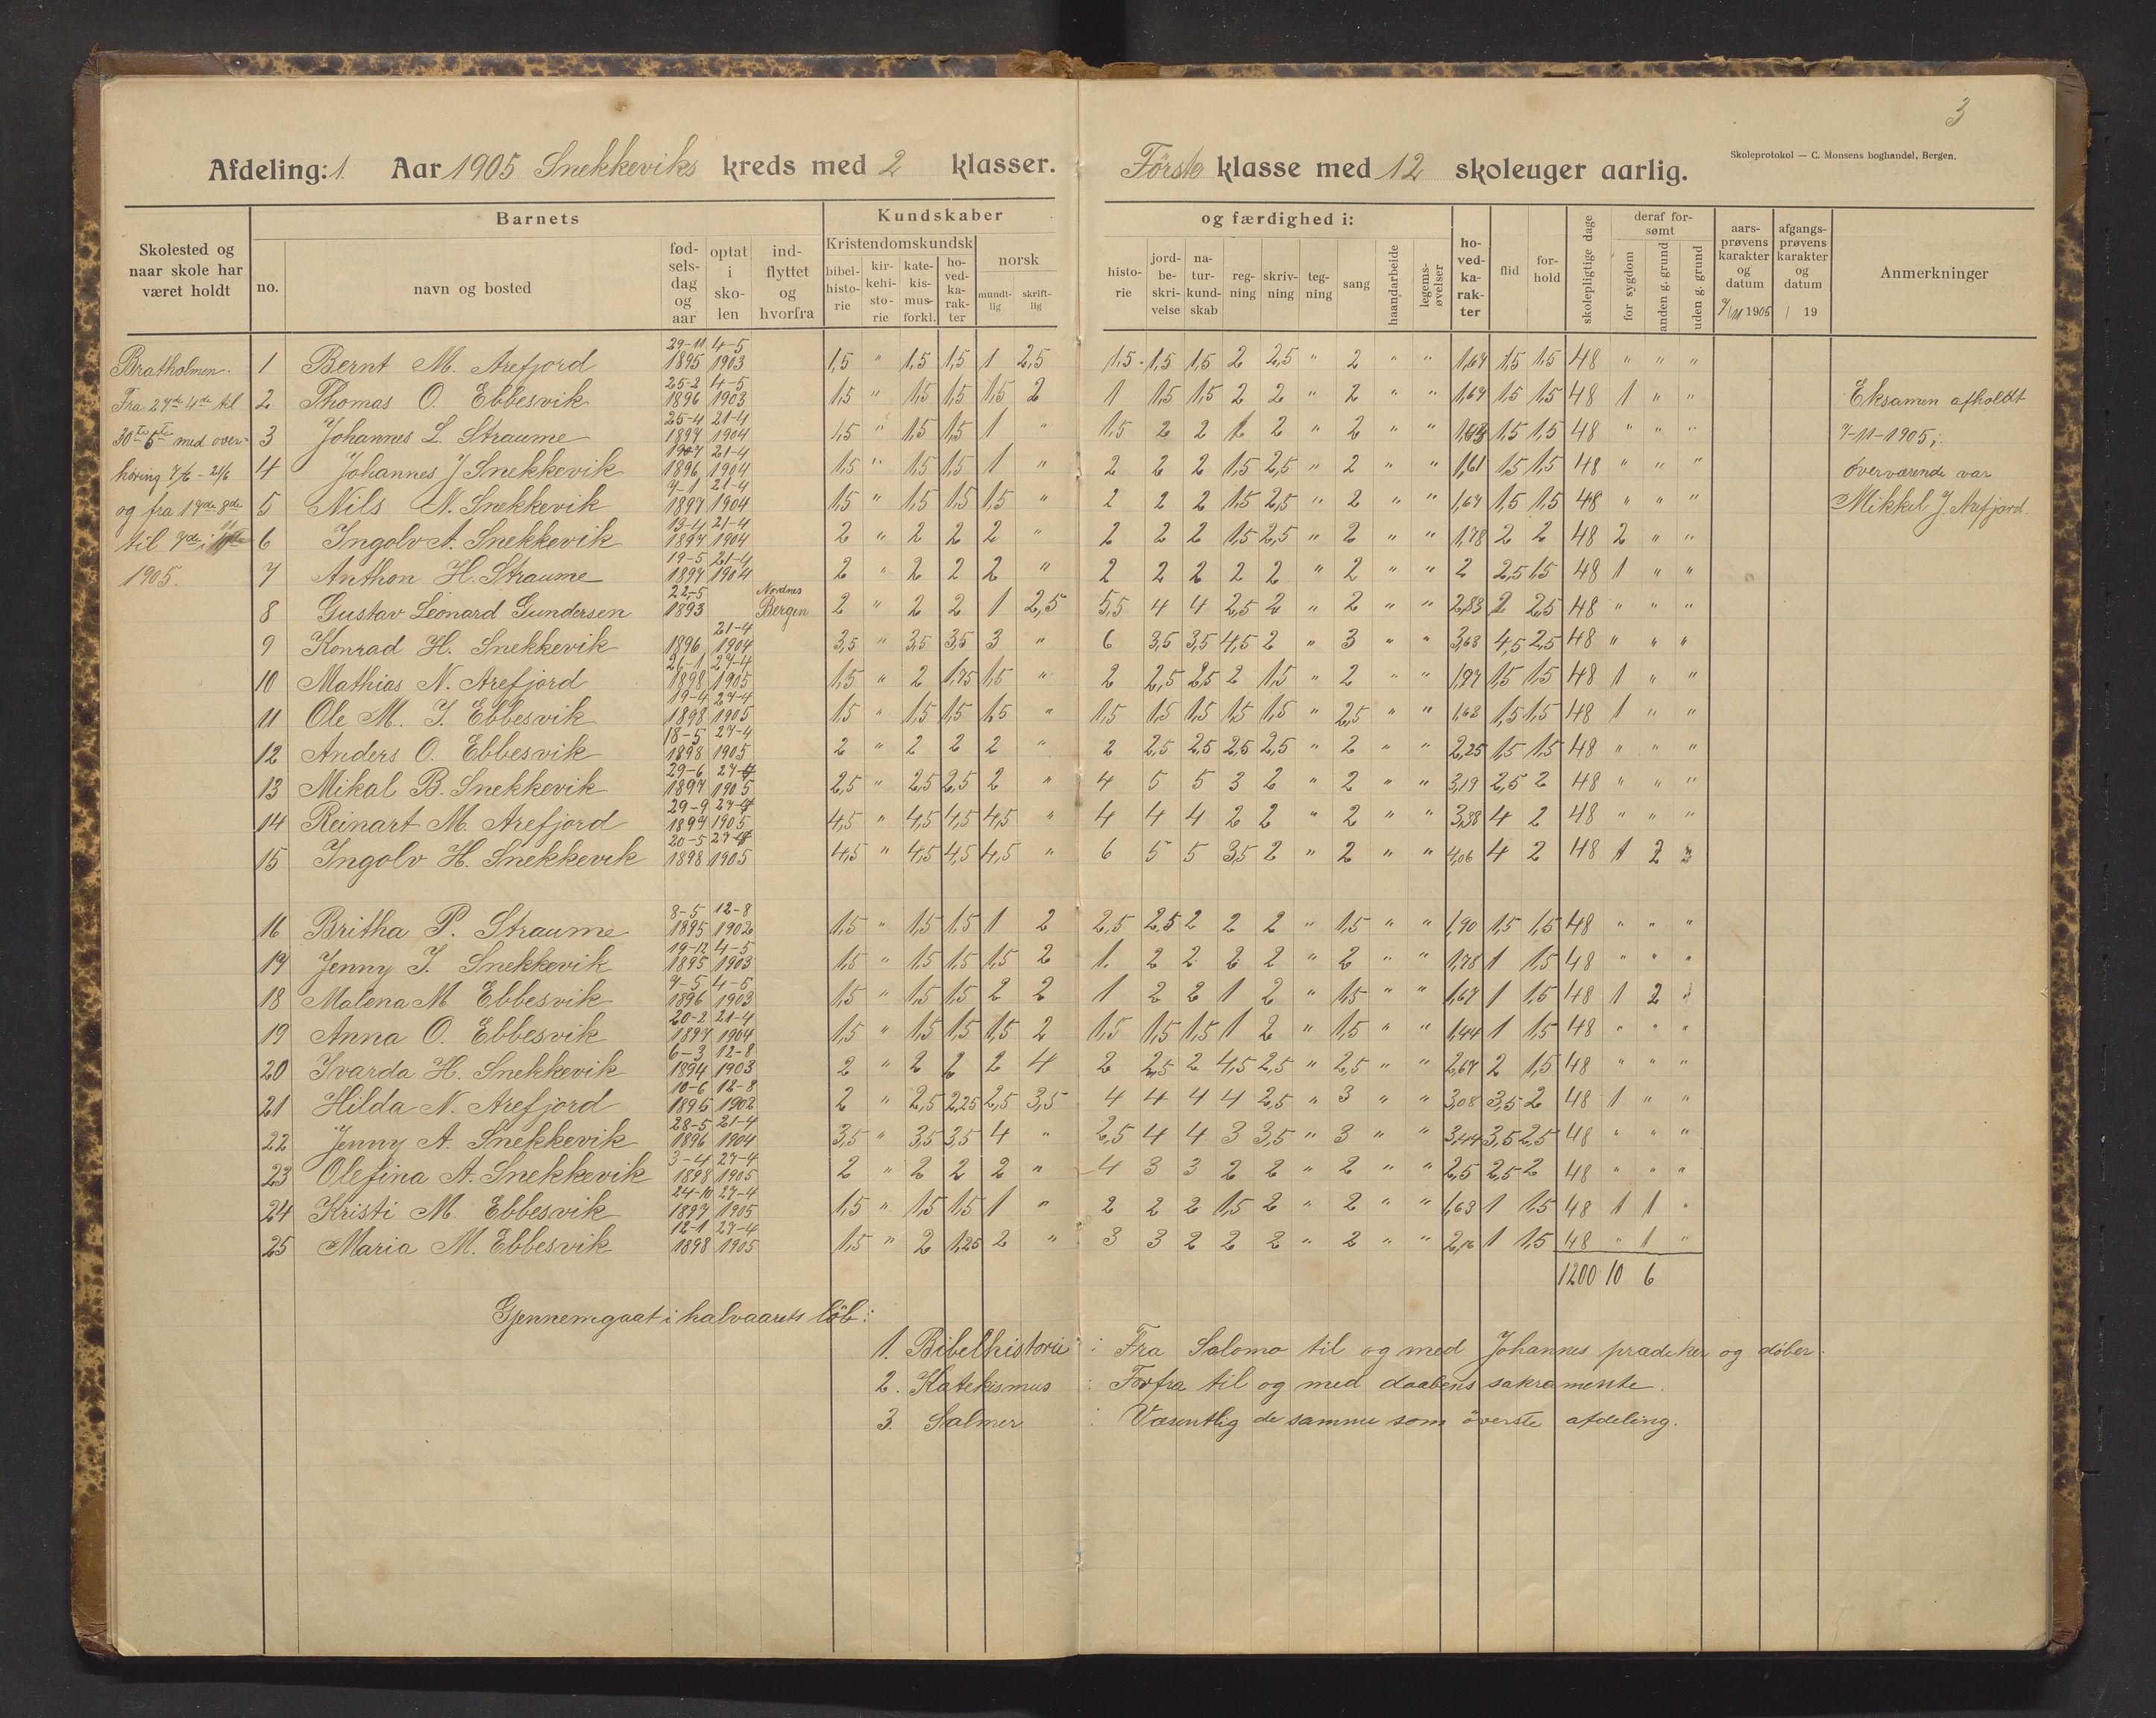 3
Skoleprotokol — C. Monsens boghandel, Bergen.
Afdeling: 1. Aar 1905 Snekkeviks kreds med 2 klasser. Første klasse med 12 skoleuger aarlig.
Skolested og naar skole har været holdt
Barnets
no. navn og bosted fødselsdag og aar optat i skolen indflyttet og hvorfra
Kundskaber og færdighed i:
Kristendomskundsk norsk
bibelhistorie kirkehistorie katekismusforkl. hovedkarakter mundtlig skriftlig
historie jordbeskrivelse naturkundskab regning skrivning tegning sang haandarbeide legemsøvelser hovedkarakter flid forhold skolepligtige dage
deraf forsømt
for sygdom anden g. grund uden g. grund
aarsprøvens karakter og datum 7/11 1905
afgangsprøvens karakter og datum / 19
Anmerkninger
Bratholmen.
Fra 27de 4de til
30te 5te med over-
høring 7/6 - 21/6
og fra 17de 8de
til 7de 11
1905.
1 Bernt M. Arefjord 29-11 1895 4-5 1903 1,5 " 1,5 1,5 1 2,5 1,5 1,5 1,5 2 2,5 " 2 " " 1,67 1,5 1,5 48 " " "
2 Thomas O. Ebbesvik 25-2 1896 4-5 1903 1,5 " 1,5 1,5 1,5 2 1 1,5 1,5 2 2 " 2 " " 1,67 1,5 1,5 48 1 " "
3 Johannes L. Straume 25-4 1897 21-4 1904 1,5 " 1,5 1,5 1 " 1,5 2 2 1 2 " 2 " " 1,5 1,5 48 " " "
4 Johannes J Snekkevik 1896 21-4 1904 1,5 " 1,5 1,5 1 " 2 2 2 1,5 2,5 " 2 " " 1,61 1,5 1,5 48 " " "
5 Nils N. Snekkevik 7-1 1897 21-4 1904 1,5 " 1,5 1,5 1,5 " 2 2 2 1,5 2,5 " 2 " " 1,67 1,5 1,5 48 " " "
6 Ingolv A. Snekkevik 13-4 1897 21-4 1904 2 " 2 2 2 " 2 2 2 1,5 2,5 " 2 " " 1,78 2 2 48 2 " "
7 Anthon H. Straume 19-5 1897 21-4 1904 2 " 2 2 2 " 2 2 2 2 2 " 2 " " 2 2,5 1,5 48 1 " "
8 Gustav Leonard Gundersen 22-5 1893 Nordnes Bergen 2 " 2 2 1 2,5 5,5 4 4 2,5 2 " 2 " " 2,83 2 2,5 48 " " "
9 Konrad H. Snekkevik 1896 21-4 1904 3,5 " 3,5 3,5 3 " 6 3,5 3,5 4,5 2 " 3 " " 3,63 4,5 2,5 48 " " "
10 Mathias N. Arefjord 26-1 1898 27-4 1905 1,5 " 2 1,75 1,5 " 2 2,5 2,5 2 1,5 " 2 " " 1,97 1,5 1,5 48 1 " "
11 Ole M. J. Ebbesvik 19-4 1898 27-4 1905 1,5 " 1,5 1,5 1,5 " 1,5 1,5 1,5 1,5 1,5 " 2,5 " " 1,63 1,5 1,5 48 1 " "
12 Anders O. Ebbesvik 18-5 1898 27-4 1905 2 " 2 2 2 " 2 2,5 2,5 2,5 2,5 " 2 " " 2,25 1,5 1,5 48 " " "
13 Mikal B. Snekkevik 29-6 1897 27-4 1905 2,5 " 2,5 2,5 2 " 4 5 5 3 2 " 2 " " 3,19 2,5 2 48 " " "
14 Reinart M. Arefjord 29-9 1897 27-4 1905 4,5 " 4,5 4,5 4,5 " 4 4 4 2 2 " 2 " " 3,38 4 2 48 " " "
15 Ingolv H. Snekkevik 20-5 1898 27-4 1905 4,5 " 4,5 4,5 4,5 " 6 5 5 3,5 2 " 2 " " 4,06 4 2 48 1 2 "
16 Britha P. Straume 8-5 1895 12-8 1902 1,5 " 1,5 1,5 1 2 2,5 2,5 2 2 2 " 1,5 " " 1,90 1,5 1,5 48 " " "
17 Jenny J. Snekkevik 19-12 1895 4-5 1903 1,5 " 1,5 1,5 1,5 2 1. 2 2 2 2 " 2 " " 1,78 1 1,5 48 " " "
18 Malena M. Ebbesvik 7-5 1896 4-5 1903 1,5 " 1,5 1,5 2 2 1 2 2 1 2 " 1,5 " " 1,67 1 1,5 48 1 2 "
19 Anna O. Ebbesvik 20-2 1897 21-4 1904 1,5 " 1,5 1,5 1,5 2 1,5 1,5 1,5 1 2 " 1,5 " " 1,44 1 1,5 48 " " "
20 Ivarda H. Snekkevik 6-3 1894 12-8 1903 2 " 2 2 2 4 2 2,5 2 4,5 2,5 " 2,5 " " 2,67 2 1,5 48 " " "
21 Hilda N. Arefjord 10-6 1895 12-8 1902 2 " 2,5 2,25 2,5 3,5 4 4 4 4 2,5 " 3 " " 3,08 3,5 2 48 1 " "
22 Jenny A. Snekkevik 28-5 1896 21-4 1904 3,5 " 3,5 3,5 4 " 2,5 4 4 3 3,5 " 3 " " 3,44 3,5 2,5 48 " " "
23 Olefina A. Snekkevik 3-4 1898 27-4 1905 2 " 2 2 2 " 4 3 3 2 2 " 2 " " 2,5 2,5 2 48 " " "
24 Kristi M. Ebbesvik 24-10 1897 27-4 1905 1,5 " 1,5 1,5 1 " 2 2 2 1,5 2 " 2 " " 1,63 1 1,5 48 1 1 "
25 Maria M. Ebbesvik 12-1 1898 27-4 1905 1,5 " 2 1,25 2 " 3 3 2 2 2 " 2 " " 2,16 1 1,5 48 " 1 "
1200 10 6
Eksamen afholdt
7-11-1905;
overværende var
Mikkel J. Arefjord.
Gjennemgaat i halvaarets løb:
1. Bibelhistorie : Fra Salomo til og med Johannes prædiker og døber.
2. Katekismus : Forfra til og med daabens sakramente.
3. Salmer : Væsentlig de samme som øverste afdeling.